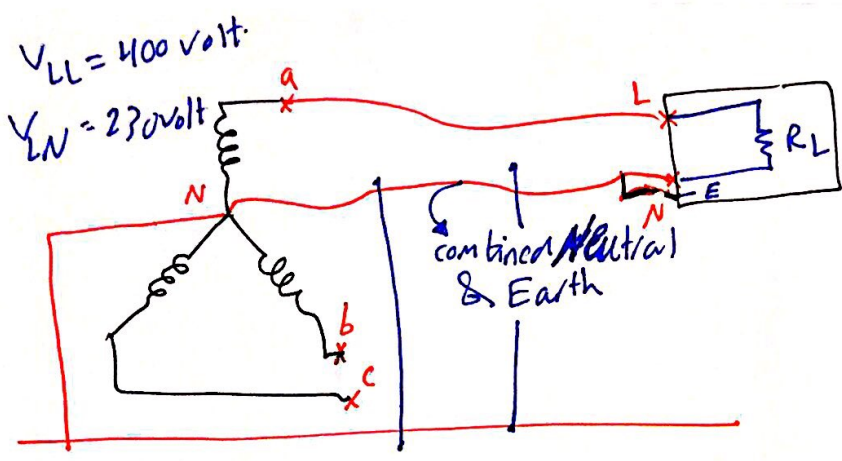 VLL = 400 volt.
VLN = 230volt
a
L
RL
N
E
N
combined Neutral
& Earth
b
c